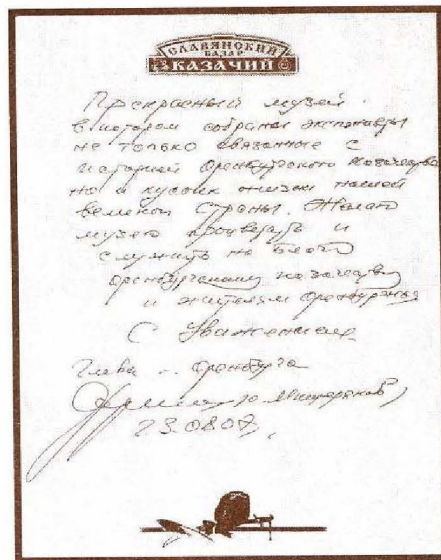 СЛАВЯНСКИЙ
БАЗАР
КАЗАЧИЙ
Прекрасный музей
в котором собраны экспонаты
не только связанные с
историей Оренбургского казачества
но и кусочек жизни нашей
великой Страны. Желаю
музею процветать и
служить на благо
оренбургскому казачеству
и жителям Оренбуржья
С Уважением
Глава г. Оренбурга
Ю Мищеряков
23.08.07